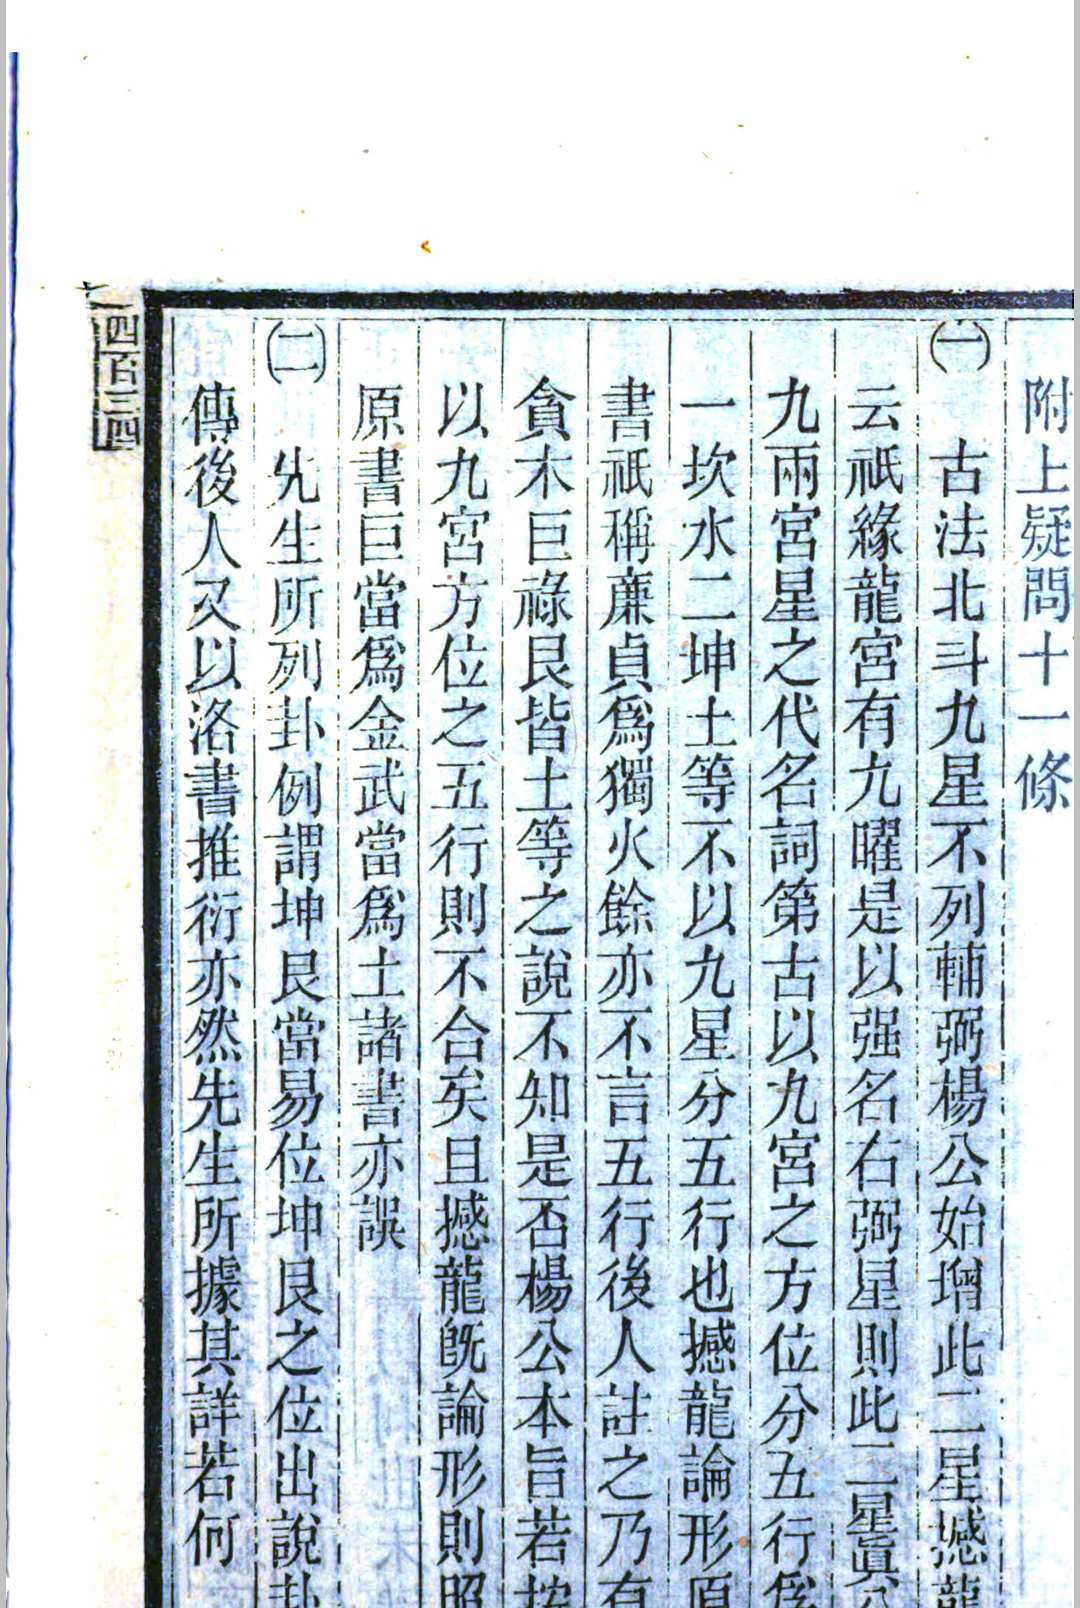 附上疑問十一條
(一) 古法北斗九星不列輔弼楊公始增此二星撼龍
云祇緣龍宮有九曜是以强名右弼星則此二星眞
九兩宮星之代名詞第古以九宮之方位分五行爲
一坎水二坤土等不以九星分五行也撼龍論形原
書祇稱廉貞爲獨火餘亦不言五行後人註之乃有
貪木巨祿艮皆土等之說不知是否楊公本旨若按
以九宮方位之五行則不合矣且撼龍旣論形則照
原書巨當爲金武當爲土諸書亦誤
(二) 先生所列卦例謂坤艮當易位坤艮之位出說卦
傳後人又以洛書推衍亦然先生所據其詳若何
四百三四